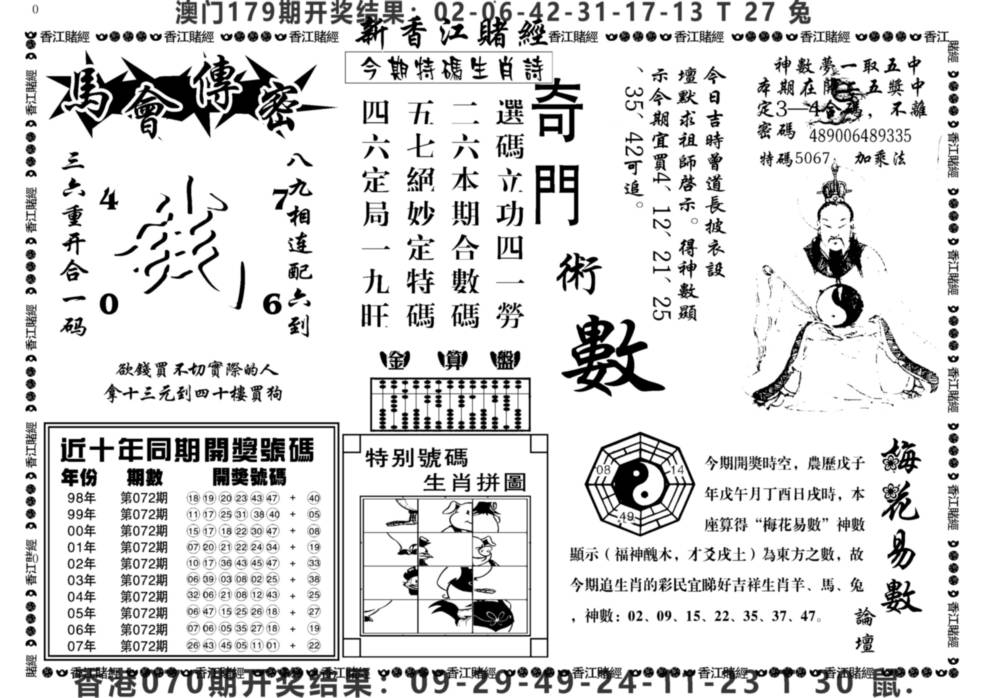 澳门179期开奖结果：02-06-42-31-17-13 T 27 兔
新香江賭經
馬會傳密
八九相连配六到
三六重开合一码
4
7
0
6
欲錢買不切實際的人
拿十三元到四十樓買狗
今期特碼生肖詩
選碼立功四一勞
二六本期合數碼
五七絕妙定特碼
四六定局一九旺
金算盤
奇門術數
今日吉時曾道長披衣設
壇默求祖師啓示。得神數顯
示今期宜買4、12、21、25
、35、42可追。
神數夢一取五中
本期在開五獎中
定3—4合碼，不離
密碼 489006489335
特碼5067：加乘法
近十年同期開獎號碼
年份 期數 開獎號碼
98年 第072期 18 19 20 23 43 47 + 40
99年 第072期 11 17 25 31 38 40 + 05
00年 第072期 15 17 18 22 30 47 + 08
01年 第072期 07 20 21 22 24 34 + 19
02年 第072期 10 17 36 43 45 47 + 33
03年 第072期 06 39 03 08 02 25 + 38
04年 第072期 32 06 21 08 12 43 + 25
05年 第072期 06 47 15 25 26 18 + 27
06年 第072期 07 06 05 35 27 18 + 19
07年 第072期 26 43 45 05 11 01 + 22
特别號碼
生肖拼圖
08
14
49
今期開獎時空，農歷戊子
年戊午月丁酉日戌時，本
座算得“梅花易數”神數
顯示（福神醜木，才爻戌土）為東方之數，故
今期追生肖的彩民宜睇好吉祥生肖羊、馬、兔
，神數：02、09、15、22、35、37、47。
梅花易數
論壇
香港070期开奖结果：09-29-49-24-11-23 T 30 鼠